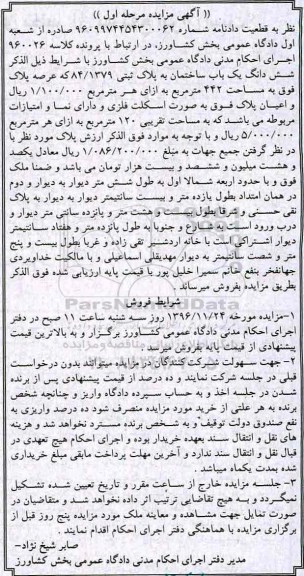 (( آگهی مزایده مرحله اول ))
نظر به قطعیت دادنامه شماره ۹۶۰۹۹۷۴۴۵۴۳۰۰۰۶۲ صادره از شعبه
اول دادگاه عمومی بخش کشاورز، در ارتباط با پرونده کلاسه ۹۶۰۰۲۶
اجرای احکام مدنی دادگاه عمومی بخش کشاورز با شرایط ذیل الذکر
شش دانگ یک باب ساختمان به پلاک ثبتی ۸۴/۱۳۷۹ که عرصه پلاک
فوق به مساحت ۴۴۲ مترمربع به ازای هر مترمربع ۱/۱۰۰/۰۰۰ ریال
و اعیان پلاک فوق به صورت اسکلت فلزی و دارای نما و امتیازات
مربوطه می باشد که به مساحت تقریبی ۱۲۰ مترمربع به ازای هر مترمربع
۵/۰۰۰/۰۰۰ ریال و با توجه به موارد فوق الذکر ارزش پلاک مورد نظر با
در نظر گرفتن جمیع جهات به مبلغ ۱/۰۸۶/۲۰۰/۰۰۰ ریال معادل یکصد
و هشت میلیون و ششصد و بیست هزار تومان می باشد و ضمنا ملک
فوق و با حدود اربعه شمالا اول به طول شش متر دیوار به دیوار و دوم
در همان امتداد بطول یازده متر و بیست سانتیمتر دیوار به دیوار به پلاک
تقی حسنی و شرقا بطول هشت متر و پانزده سانتی متر دیوار و
درب ورود است به شارع و جنوبا به طول پانزده متر و هفتاد سانتیمتر
دیوار اشتراکی است با خانه اردشیر تقی زاده و غربا بطول بیست و پنج
متر و شصت سانتیمتر به دیوار مهدیقلی اسماعیلی و با مالکیت خداویردی
جهانفخر بنفع خانم سمیرا خلیل پور با قیمت پایه ارزیابی شده فوق الذکر
بطریق مزایده بفروش میرساند
شرایط فروش
۱-مزایده مورخه ۱۳۹۶/۱۱/۲۴ روز سه شنبه ساعت ۱۱ صبح در دفتر
اجرای احکام مدنی دادگاه عمومی کشاورز برگزار و به بالاترین قیمت
پیشنهادی از قیمت پایه بفروش میرسد
۲- جهت سهولت شرکت کنندگان در مزایده میتوانند بدون درخواست
قبلی در جلسه شرکت نمایند و ده درصد از قیمت پیشنهادی پس از برنده
شدن در جلسه اخذ و به حساب سپرده دادگاه واریز و چنانچه شخص
برنده به هر علتی از خرید مورد مزایده منصرف شود ده درصد واریزی به
نفع صندوق دولت توقیف و به شخص برنده مسترد نخواهد شد و هزینه
های نقل و انتقال سند بعهده خریدار بوده و اجرای احکام هیچ تعهدی در
قبال نقل و انتقال سند ندارد و آخرین مهلت پرداخت مابقی مبلغ خریداری
شده بمدت یکماه میباشد .
۳- جلسه مزایده خارج از ساعت مقرر و تاریخ تعیین شده تشکیل
نمیگردد و به هیچ تقاضایی ترتیب اثر داده نخواهد شد و متقاضیان در
صورت تمایل جهت مشاهده و معاینه ملک مورد مزایده پنج روز قبل از
برگزاری مزایده با هماهنگی دفتر اجرای احکام اقدام نمایند .
صابر شیخ نژاد-
مدیر دفتر اجرای احکام مدنی دادگاه عمومی بخش کشاورز